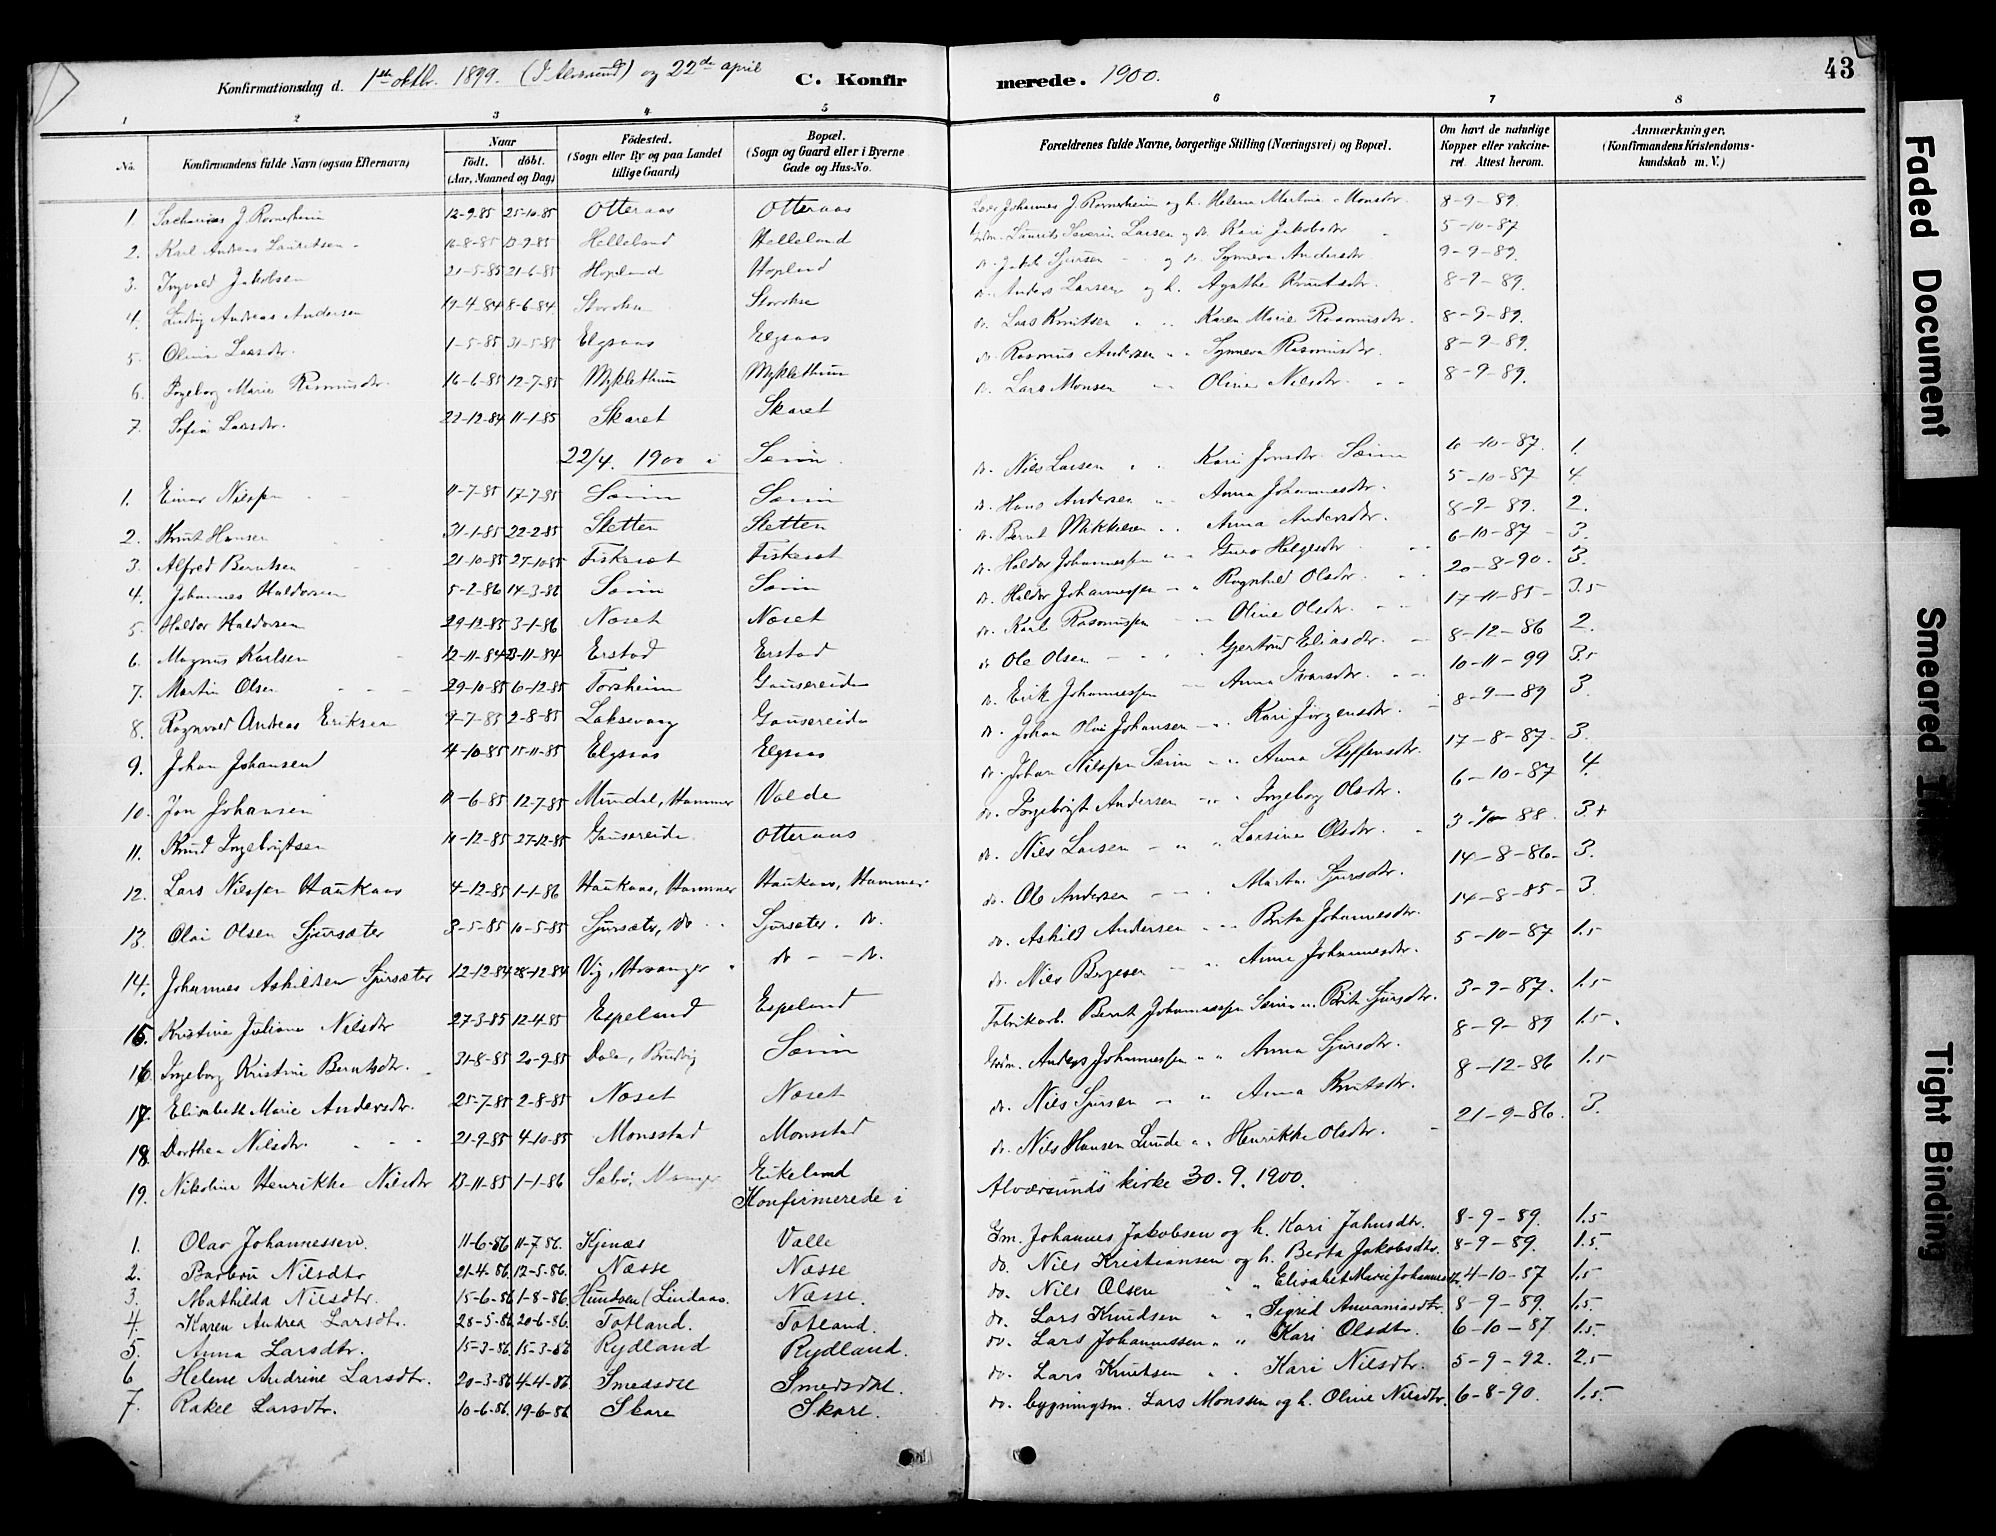 Konfirmationsdag d. 1ste oktbr. 1899. (I Alversund) og 22de april C. Konfirmerede. 1900. 43
1 2 3 4 5 6 7 8
No. Konfirmandens fulde Navn (ogsaa Efternavn) Naar født. døbt. (Aar, Maaned og Dag) Födested. (Sogn eller By og paa Landet tillige Gaard) Bopæl. (Sogn og Gaard eller i Byerne Gade og Hus-No. Forældrenes fulde Navne, borgerlige Stilling (Næringsvei) og Bopæl. Om havt de naturlige Kopper eller vakcineret. Attest herom. Anmærkninger. (Konfirmandens Kristendomskundskab m. V.)
1. Sacharias J. 12-9-85 25-10-85 Otteraas Otteraas Johannes J. og h. Helene Martina Monsdr. 8-9-89.
2. Karl Andreas Lauritsen 16-8-85 13-9-85 Helleland Helleland Laurits Severin Larsen og do. Kari Jakobsdr. 5-10-87
3. Ingvald Jakobsen 21-5-85 21-6-85 Hopland Hopland do. Jakob Sjursen og do. Synneva Andersdr. 9-9-89.
4. Ludvig Andreas Andersen 19-4-84 8-6-84 do. Anders Larsen og h. Agathe Knutsdr. 8-9-89.
5. Olina Larsdr. 1-5-85 31-5-85 Elgsaas Elgsaas do. Lars Knutsen Karen Marie Rasmusdr. 8-9-89.
6. Ingeborg Marie Rasmusdr. 16-6-85 12-7-85 Myklethun Myklethun do. Rasmus Andersen Synneva Rasmusdr. 8-9-89.
7. Sofia Larsdr. 22-12-84 11-1-85 Skaret Skaret do. Lars Monsen Oline Nilsdr. 8-9-89.
22/4. 1900 i Sæim.
1. Einar Nilssen 11-7-85 17-7-85 Sæim Sæim do. Nils Larsen Kari Jonsdr. Sæim 6-10-87. 1.
2. Knut Hansen 31-1-85 22-2-85 Sletten Sletten do. Hans Andersen Anna Johannesdr. 5-10-87 4.
3. Alfred Berntsen 21-10-85 27-10-85 Fiskeset Fiskeset do. Bernt Mikkelsen Anna Andersdr. 8-9-89. 2.
4. Johannes Haldorsen 5-2-86 14-3-86 Sæim Sæim do. Haldor Johannessen Guro Helgesdr. 6-10-87 3.
5. Haldor Haldorsen 29-12-85 3-1-86 Noset Noset do. Haldor Johannessen Ragnhild Olsdr. 20-8-90. 3.
6. Magnus Karlsen 12-11-84 23-11-84 Erstad Erstad do. Karl Rasmussen Oline Olsdr. 17-11-85 3.5
7. Martin Olsen 29-10-85 6-12-85 Torsheim Gausereide do. Ole Olsen Gjertrud Eliasdr. 8-12-86 2.
8. Ragnvald Andreas Eriksen 9-7-85 2-8-85 Laksevaag Gausereide do. Erik Johannessen Anna Ivarsdr. 10-11-99 3.5
9. Johan Johansen 4-10-85 15-11-85 Elgsaas Elgsaas do. Johan Johansen Kari Jørgensdr. 8-9-89 3.
10. Jon Johansen 11-6-85 12-7-85 Mundal, Hammer Valde do. Johan Nilssen Sæim Anna Steffensdr. 17-8-87 3.
11. Knud Ingebrigtsen 11-12-85 27-12-85 Gausereide Otteraas do. Ingebrigt Andersen Ingeborg Olsdr. 6-10-87 4.
12. Lars Nilssen Haukaas 4-12-85 1-1-86 Haukaas, Hammer Haukaas, Hammer do. Nils Larsen Larsina Olsdr. 88 3+
13. Olai Olsen Sjursæter 3-5-85 10-5-85 Sjursæter, do Sjursæter. do. do. Ole Andersen Marta Sjursdr. 14-8-86 3.
14. Johannes Askildsen Sjursæter 12-12-84 28-12-84 Vig, Hosanger do - - do. do. Askild Andersen Brita Johannesdr. 14-8-85 3.
15. Kristine Juliane Nilsdr 27-3-85 12-4-85 Espeland Espeland do. Nils Børgesen Anna Johannesdr. 5-10-87 1.5
16. Ingeborg Kristine Berntsdr. 31-8-85 20-9-85 Dale, Bruvig Sæim Fabrikarb. Bernt Johannessen Sæim Brita Sjursdr. 3-9-87. 1.5
17. Elisabeth Marie Andersdr. 25-7-85 2-8-85 Noset Noset Grdm. Anders Johannessen Anna Sjursdr. 8-9-89 1.5.
18. Dorthea Nilsdr. 21-9-85 4-10-85 Monsstad Monsstad do. Nils Sjursen Anna Knutsdr. 8-12-86 1.5
19. Nikoline Henrikke Nilsdr 13-11-85 1-1-86 Sæbø, Manger Eikeland do. Nils Hansen Lunde Henrikke Olsdr. 21-9-86. 3.
Konfirmerede i Alværsunds kirke 30. 9. 1900.
1. Olav Johannessen. 11-6-86 11-7-86. Kjenæs Valle Gm. Johannes Jakobsen og h. Kari Jahnsdtr. 8-9-89. 1.5
2. Barbru Nilsdtr 21-4-86. 12-5-86. Næsse Næsse do. Nils Kristiansen og h. Berta Jakobsdtr. 8-9-89. 1.5.
3. Mathilda Nilsdtr. 15-6-86 1-8-86. Hundven (Lindaas. Næsse. do. Nils Olsen " Elisabet Marie Johannesdtr. 4-10-87 1.5
4. Karen Andrea Larsdtr. 28-5-86 20-6-86. Totland. Totland. do. Lars Knudsen " " Sigrid Annaniasdtr. 8-9-89. 1.5.
5. Anna Larsdtr. 15-3-86 15-3-86 Rydland Rydland. do. Lars Johannessen " " Kari Olsdtr. 6-10-87 1.5.
6 Helene Andrine Larsdtr. 20-3-86 4-4-86. Smedsdal Smedsdal. do. Lars Knutsen " Kari Nilsdtr. 5-9-92. 2.5
7. Rakel Larsdtr. 10-6-86. 19-6-86 Skare Skare. do. bygningsm. Lars Monssen og h. Oline Nilsdtr. 6-8-90. 1.5
Faded Document
Smeared Ink
Tight Binding